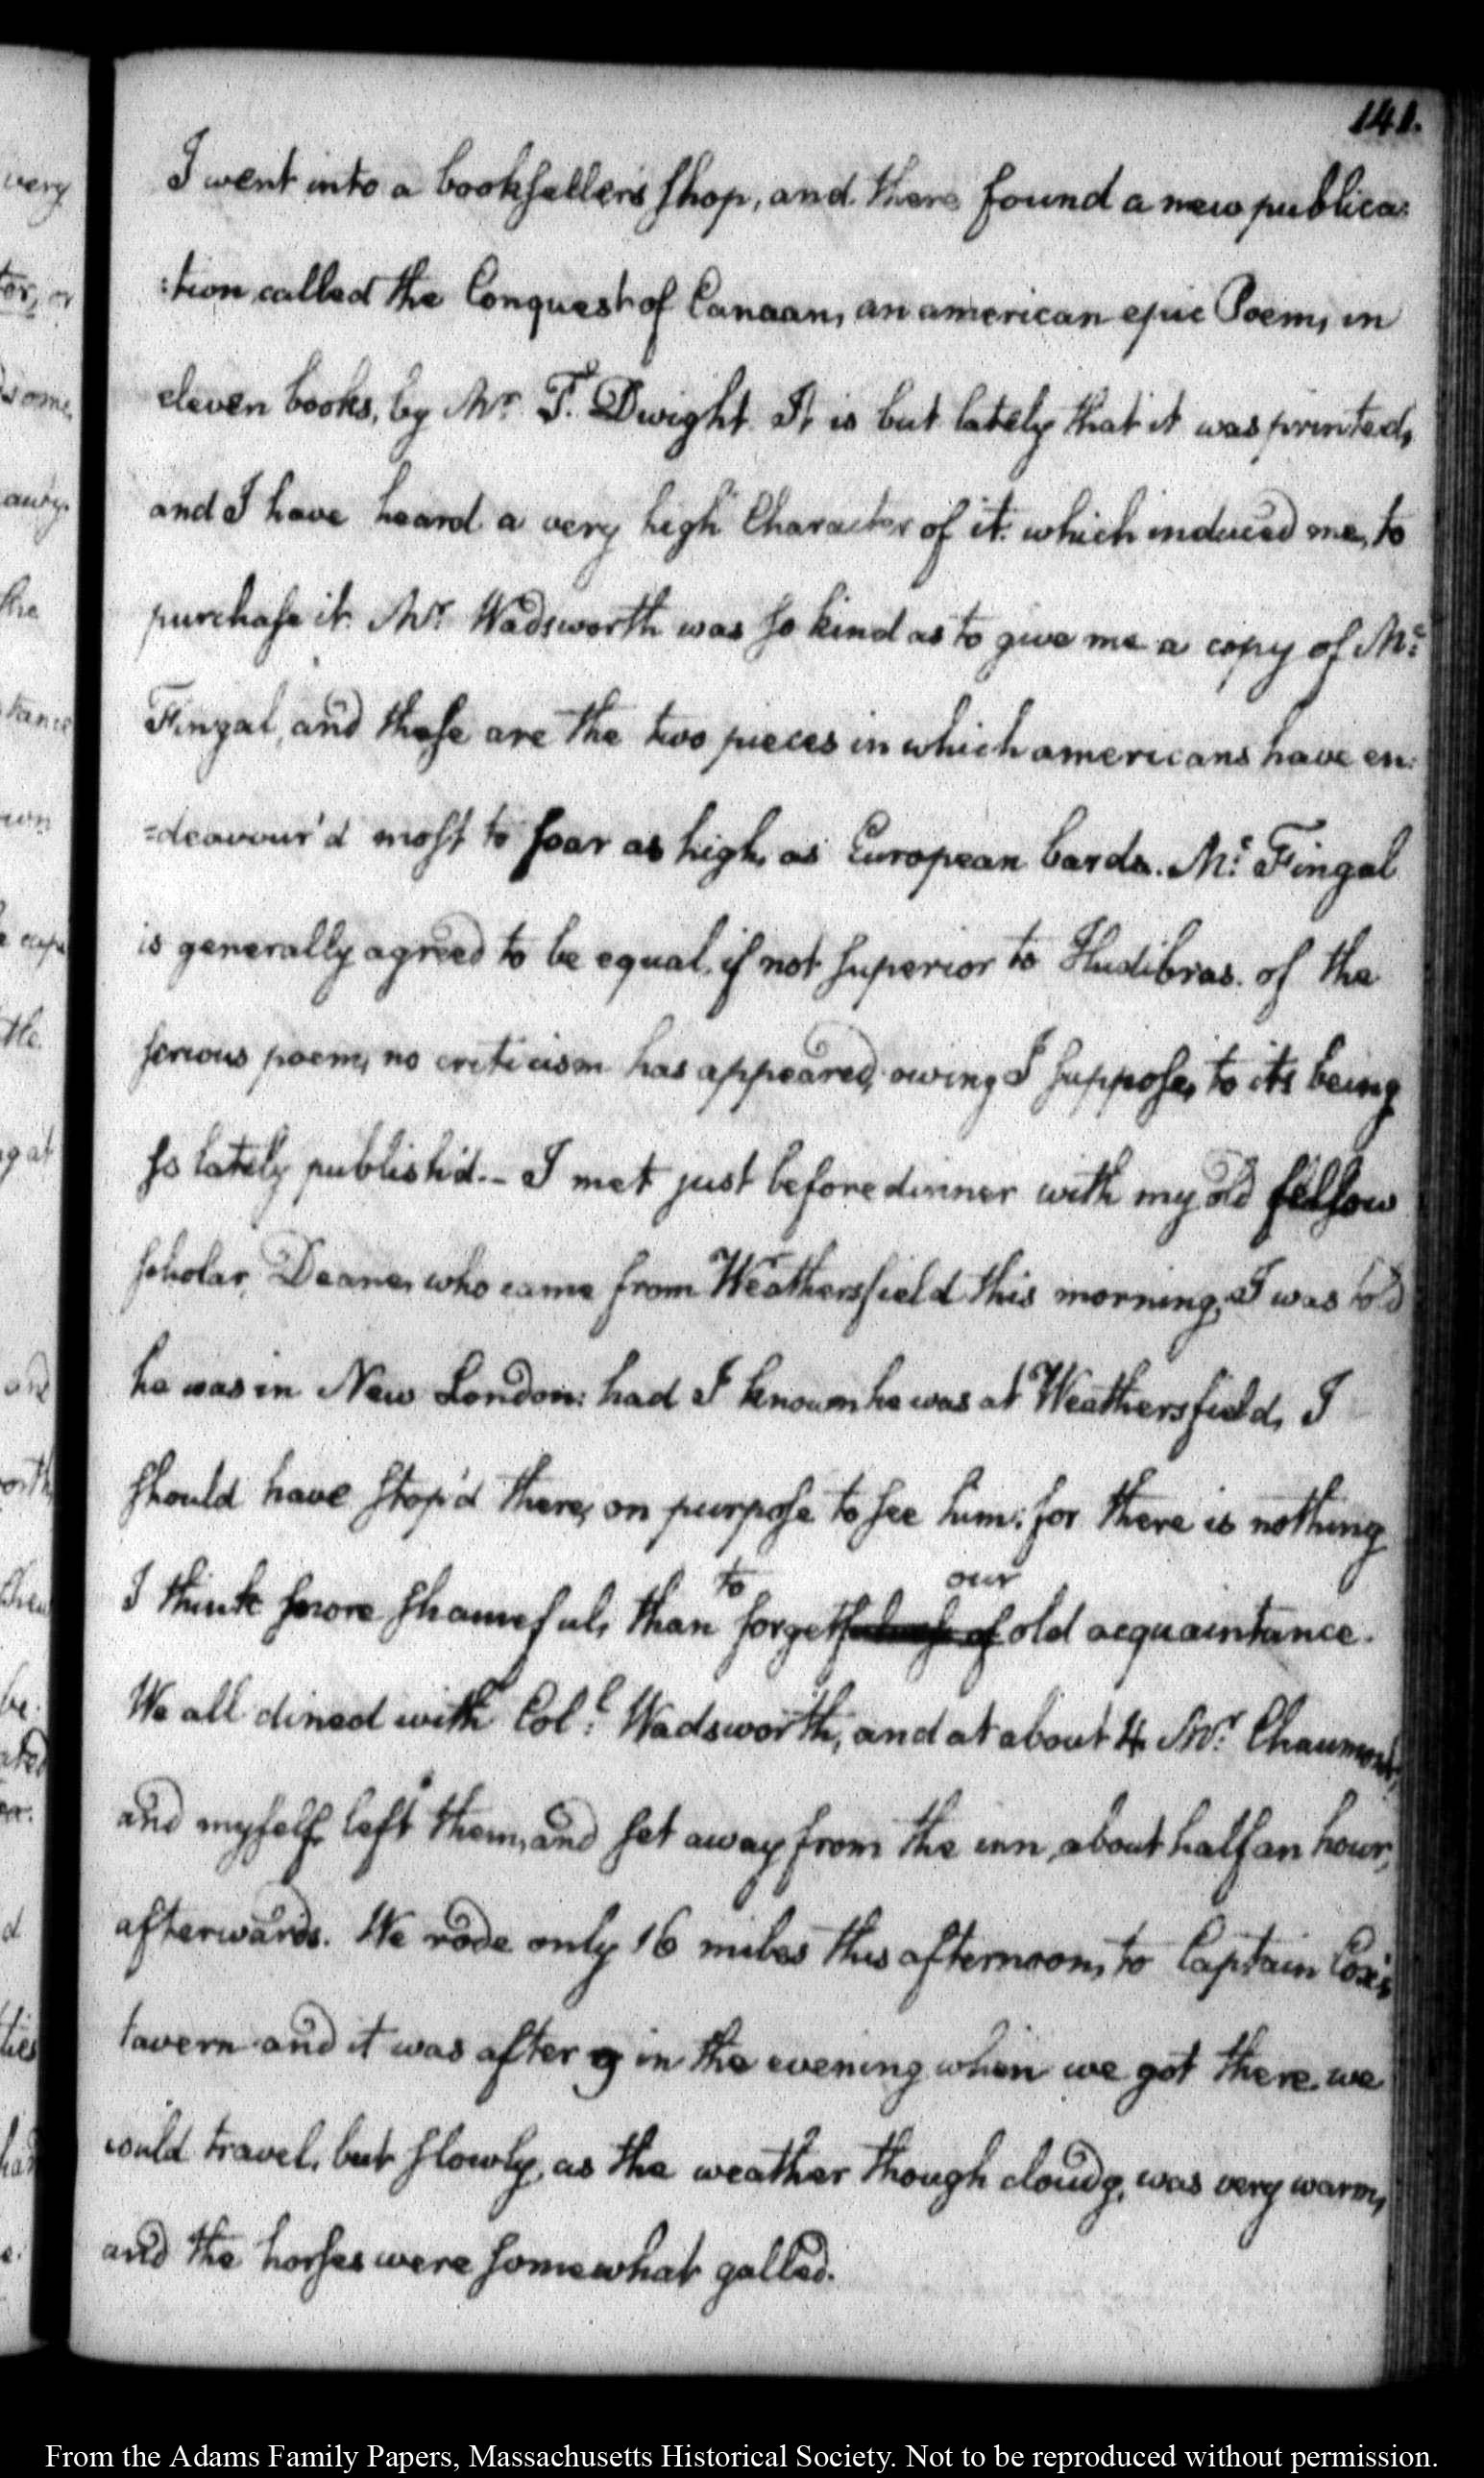 141.
I went into a booksellers shop, and there found a new publica:
:tion called the Conquest of Canaan, an american epic Poem, in
eleven books, by Mr. T. Dwight. It is but lately that it was printed,
and I have heard a very high Character of it. which induced me, to
purchase it. Mr. Wadsworth was so kind as to give me a copy of Mc:
Fingal, and these are the two pieces in which americans have en:
=deavour'd most to soar as high, as European bards. Mc: Fingal
is generally agreed to be equal, if not superior to Hudibras. of the
serious poem, no criticism has appeared, owing I suppose, to its being
so lately publish'd.— I met just before dinner with my old fellow
scholar, Deane, who came from Weathersfield this morning, I was told
he was in New London: had I known he was at Weathersfield, I
should have stop'd there, on purpose to see him: for there is nothing
I think more shameful, than to forgetfulness of our old acquaintance.
We all dined with Coll: Wadsworth, and at about 4. Mr. Chaumont,
and myself left them, and set away from the inn, about half an hour,
afterwards. We rode only 16 miles this afternoon, to Captain Cox's,
tavern and it was after 9 in the evening when we got there. we
could travel, but slowly, as the weather though cloudy, was very warm,
and the horses were somewhat galled.
very
some
the
From the Adams Family Papers, Massachusetts Historical Society. Not to be reproduced without permission.